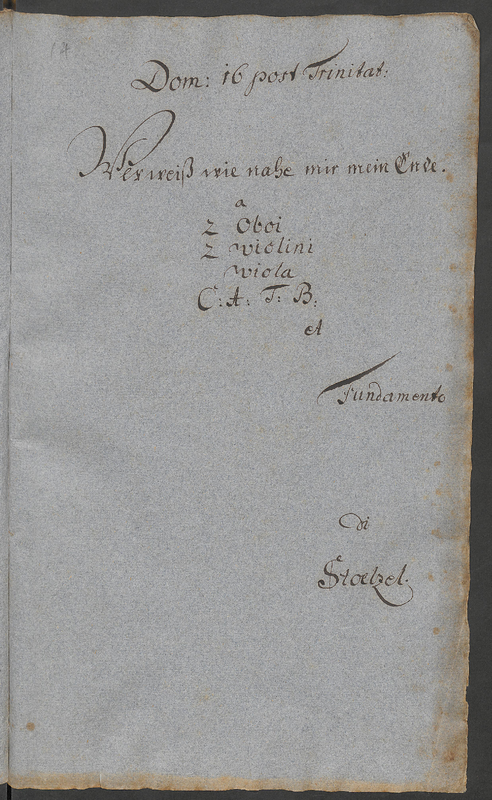 14
Dom: 16 post Trinitat:
Wer weiß wie nahe mir mein Ende.
a
2 Oboi
2 Violini
Viola
C: A: T: B:
et
Fundamento
di
Stoelzel.